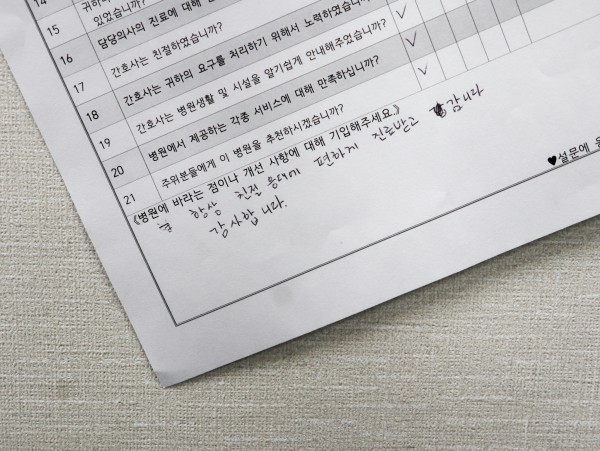 14 귀하
있었습니까?
15 담당의사의 진료에 대해
16 간호사는 친절하였습니까?
17 간호사는 귀하의 요구를 처리하기 위해서 노력하였습니까?
18 간호사는 병원생활 및 시설을 알기쉽게 안내해주었습니까?
19 병원에서 제공하는 각종 서비스에 대해 만족하십니까?
20 주위분들에게 이 병원을 추천하시겠습니까?
21 《병원에 바라는 점이나 개선 사항에 대해 기입해주세요.》
항상 친절 응대에 편하게 진료받고 갑니다
감사합니다.
♥설문에 응